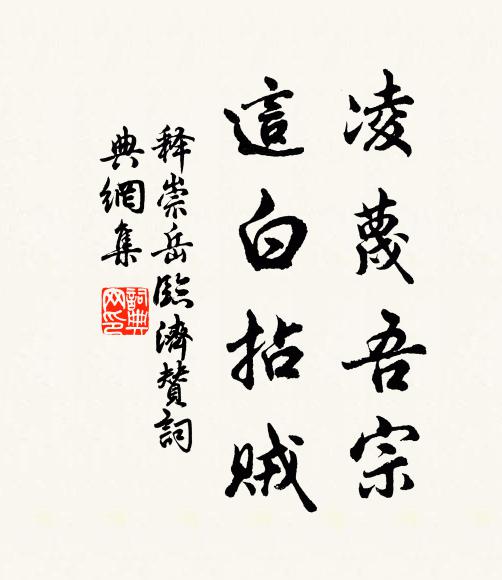 凌蔑吾宗
這白拈賊
释崇岳臨濟贊詞
典網集
詞典网印